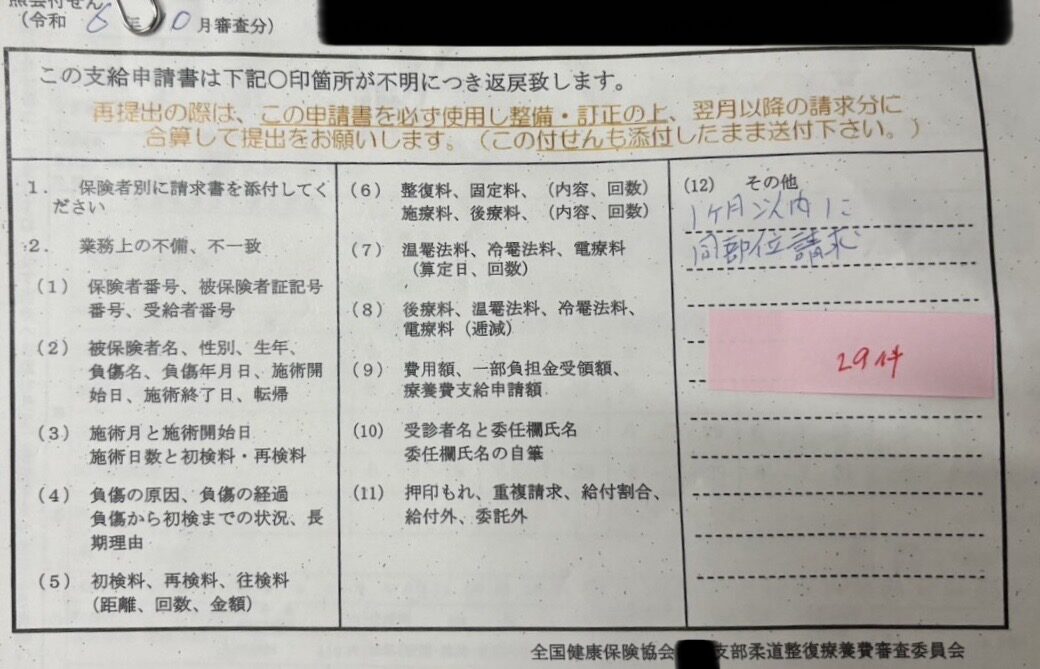 照会付せん
(令和 6 年 10 月審査分)
この支給申請書は下記〇印箇所が不明につき返戻致します。
再提出の際は、この申請書を必ず使用し整備・訂正の上、翌月以降の請求分に
合算して提出をお願いします。(この付せんも添付したまま送付下さい。)
1. 保険者別に請求書を添付してく
ださい
2. 業務上の不備、不一致
(1) 保険者番号、被保険者証記号
番号、受給者番号
(2) 被保険者名、性別、生年、
負傷名、負傷年月日、施術開
始日、施術終了日、転帰
(3) 施術月と施術開始日
施術日数と初検料・再検料
(4) 負傷の原因、負傷の経過
負傷から初検までの状況、長
期理由
(5) 初検料、再検料、往検料
(距離、回数、金額)
(6) 整復料、固定料、(内容、回数)
施療料、後療料、(内容、回数)
(7) 温罨法料、冷罨法料、電療料
(算定日、回数)
(8) 後療料、温罨法料、冷罨法料、
電療料(逓減)
(9) 費用額、一部負担金受領額、
療養費支給申請額
(10) 受診者名と委任欄氏名
委任欄氏名の自筆
(11) 押印もれ、重複請求、給付割合、
給付外、委託外
(12) その他
1ヶ月以内に
同部位請求
29件
全国健康保険協会 支部柔道整復療養費審査委員会